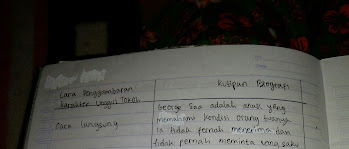 Cara Penggambaran
karakter Unggul Tokoh
Kutipan Biografi
Cara langsung
George Saa adalah anak yang
memahami kondisi orang tuanya
Ia tidak pernah menerima dan
tidak pernah meminta uang saku